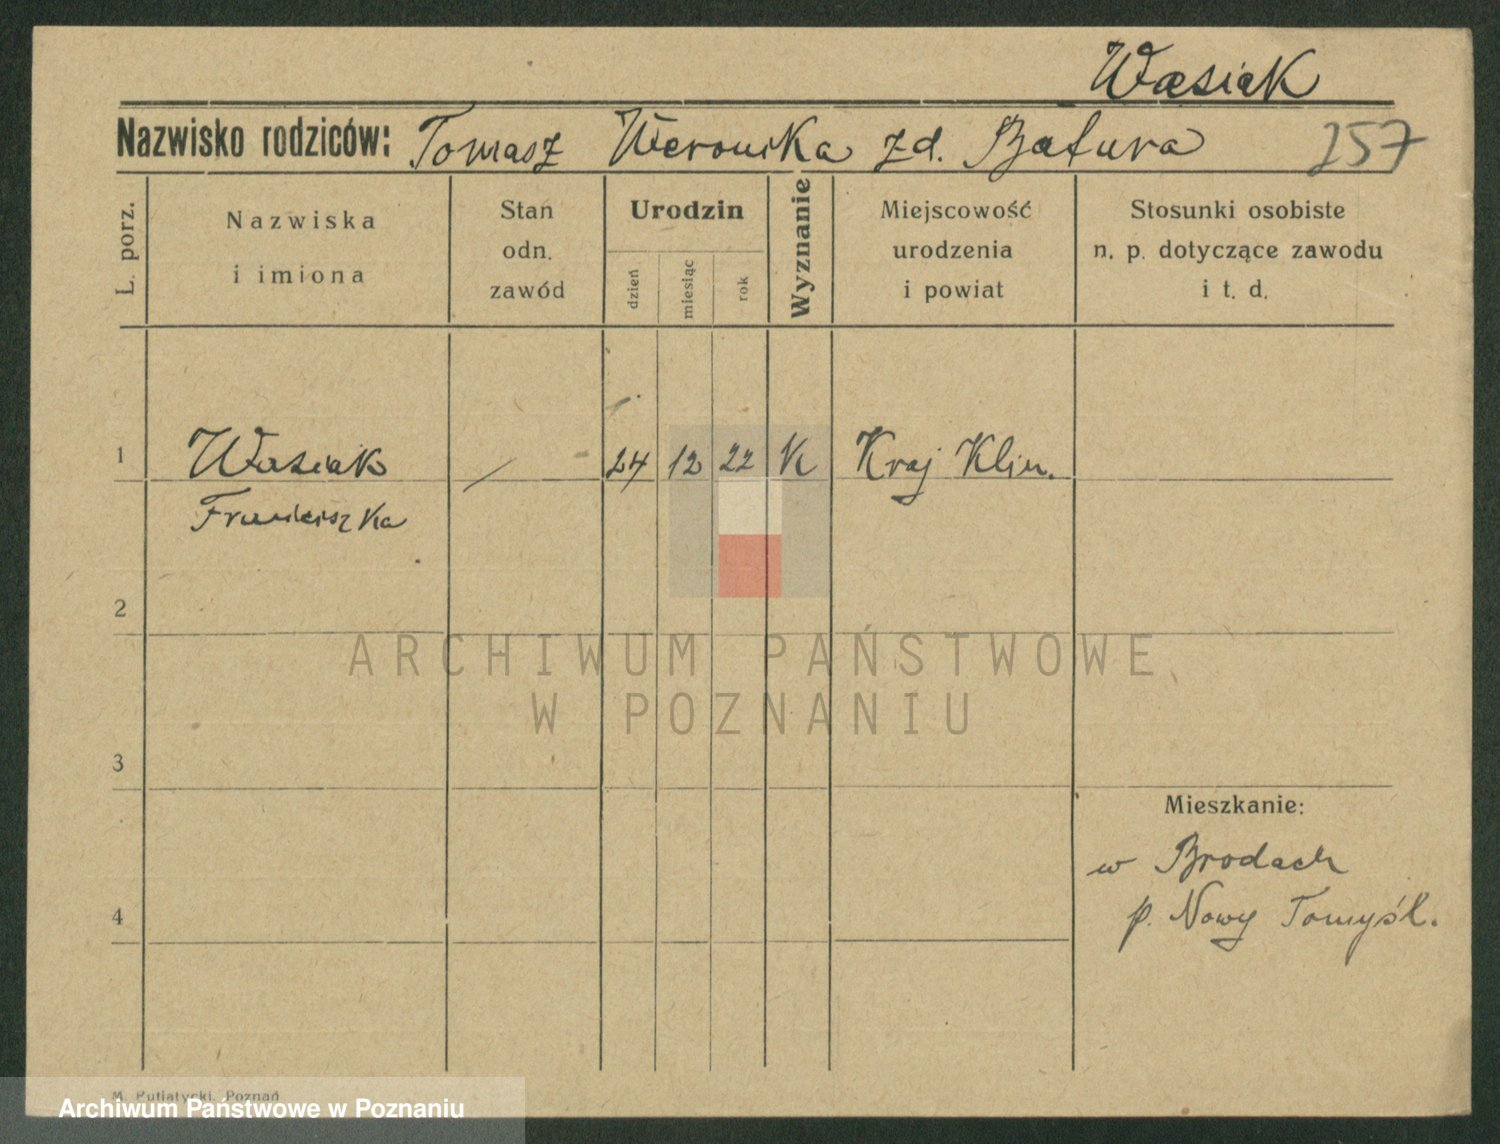 Wasiak
Nazwisko rodziców: Tomasz Weronika zd. Batura 257
L. porz.
Nazwiska
i imiona
Stan
odn.
zawód
Urodzin
dzień
miesiąc
rok
Wyznanie
Miejscowość
urodzenia
i powiat
Stosunki osobiste
n. p. dotyczące zawodu
i t. d.
1 Wasiak / 24 12 22 K Kraj Klin.
Franciszka
2
ARCHIWUM PAŃSTWOWE
W POZNANIU
3
Mieszkanie:
w Brodach
4 p. Nowy Tomyśl.
M. Putiatycki, Poznań
Archiwum Państwowe w Poznaniu